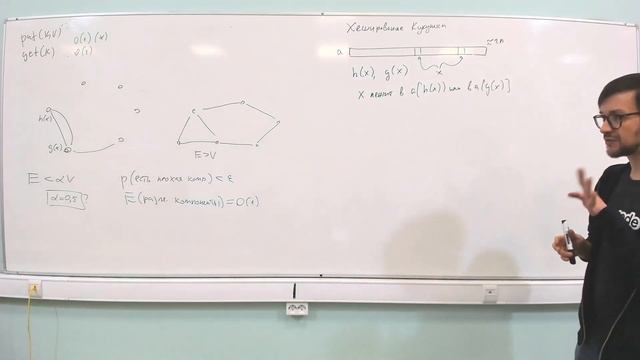 put(k,v) O(1) (*)
get(k) O(1)
h(x)
g(x)
E > V
E < αV
α=0,5 ?
p(есть плохая комп) < ε
E(разм. компоненты) = O(1)
Хеширование Кукушки
a
≈ 2n
x
h(x), g(x)
x лежит в a[h(x)] или в a[g(x)]